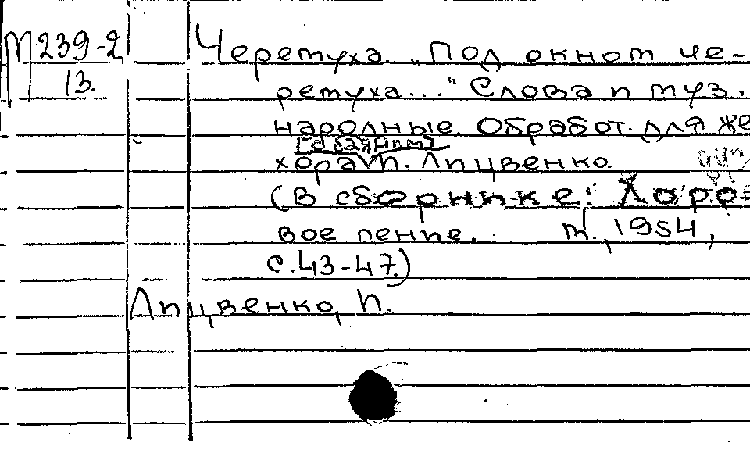 М 239-2
13.
Черемуха. „Под окном че-
ремуха..." Слова и муз.
народные. Обработ. для же
[a cappella]
хора И. Лицвенко
(В сборнике: Хоро-
вое пение. М., 1954,
с.43-47.)
Лицвенко, И.